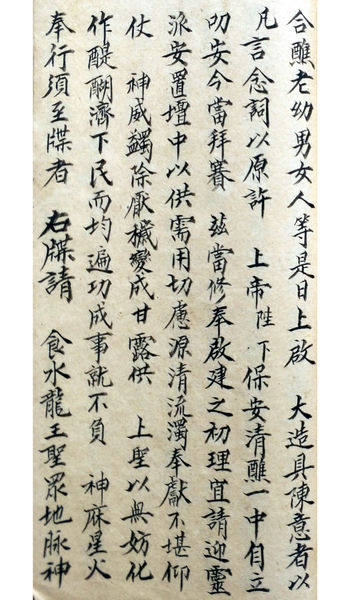 合醮老幼男女人等是日上啟　大造具陳意者以
凡言念詞以原許　上帝陛下保安清醮一中自立
叨安今當拜賽　茲當修奉啟建之初理宜請迎靈
派安置壇中以供需用切慮源清流濁奉獻不堪仰
仗　神威蠲除厭穢變成甘露供　上聖以無妨化
作醍醐濟下民而均遍功成事就不負　神庥星火
奉行須至牒者　右牒請　食水龍王聖眾地脉神